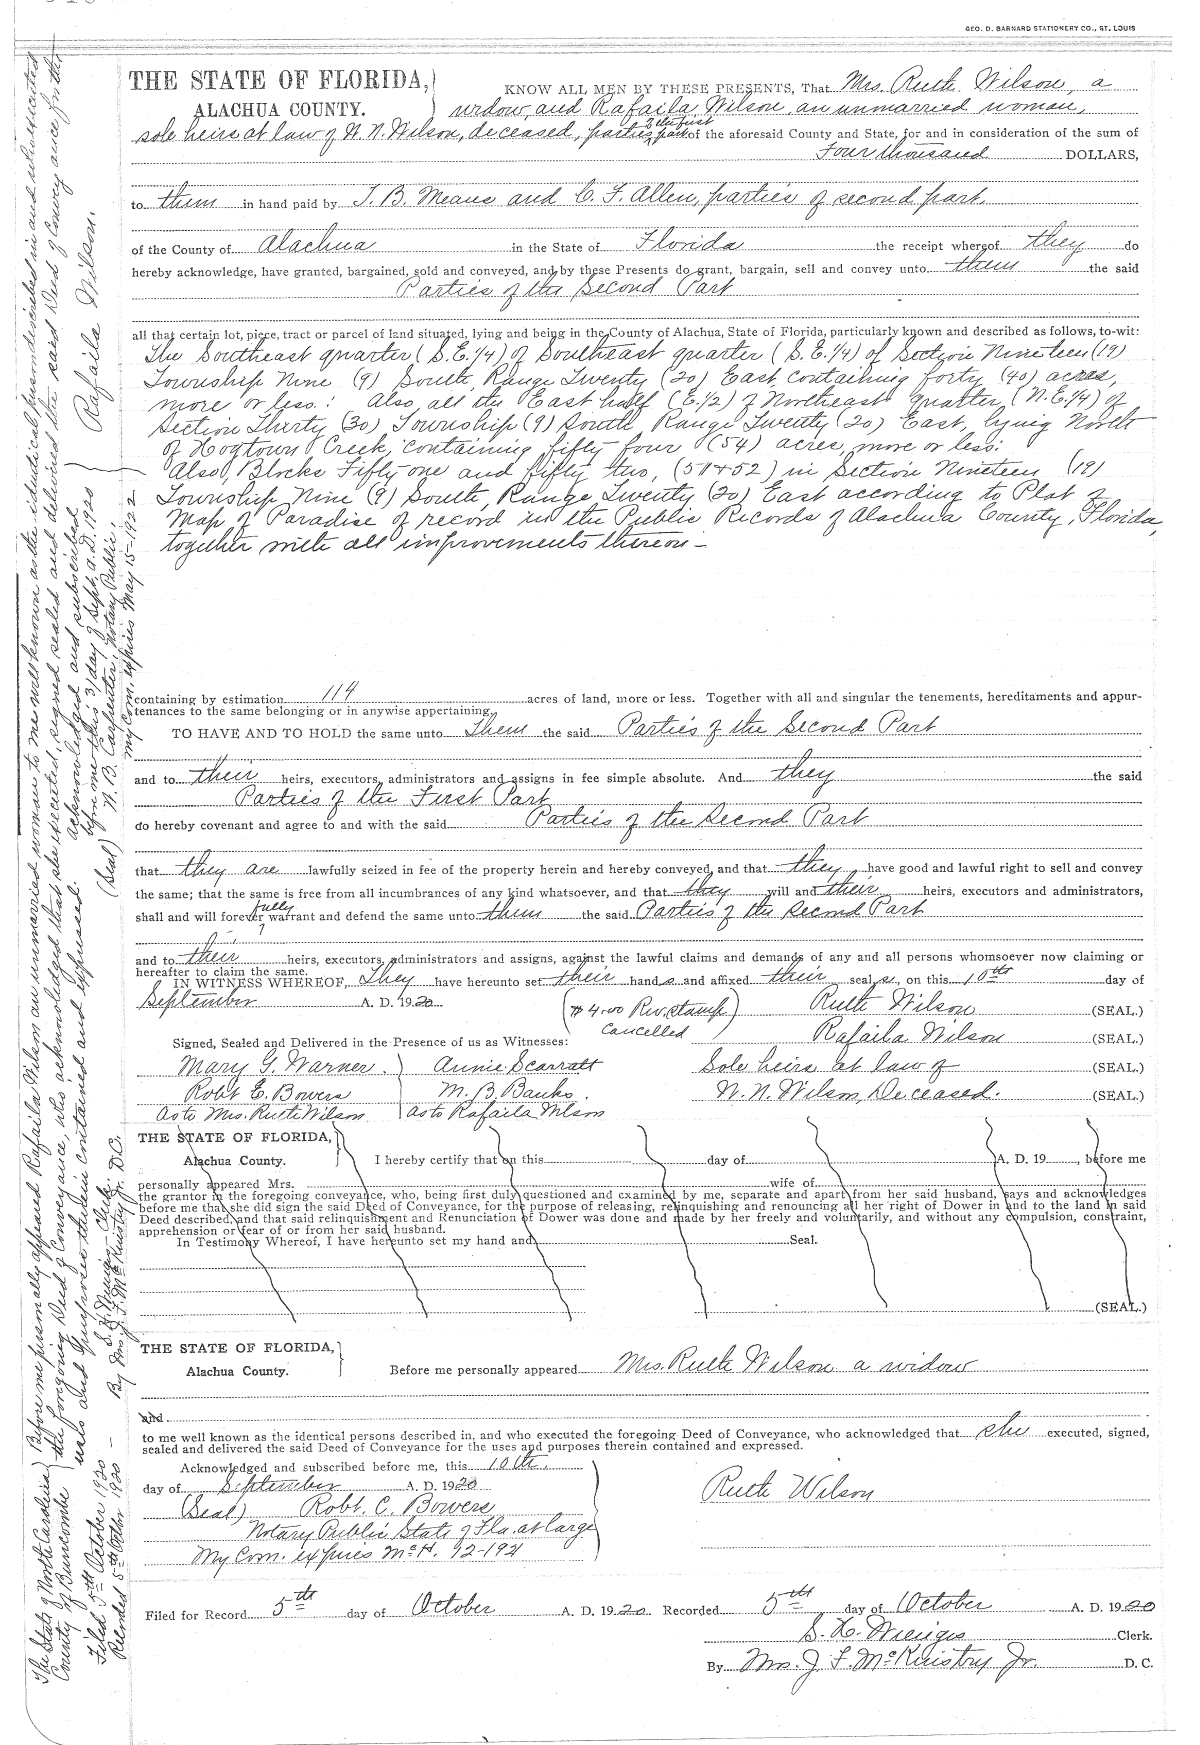 GEO. D. BARNARD STATIONERY CO., ST. LOUIS
THE STATE OF FLORIDA,
ALACHUA COUNTY.
KNOW ALL MEN BY THESE PRESENTS, That Mrs. Ruth Wilson, a
widow, and Rafaila Wilson, an unmarried woman,
sole heirs at law of W. N. Wilson, deceased, parties of the first part of the aforesaid County and State, for and in consideration of the sum of
Four thousand DOLLARS,
to them in hand paid by T. B. Means and C. F. Allen, parties of second part,
of the County of Alachua in the State of Florida the receipt whereof they do
hereby acknowledge, have granted, bargained, sold and conveyed, and by these Presents do grant, bargain, sell and convey unto them the said
Parties of the Second Part
all that certain lot, piece, tract or parcel of land situated, lying and being in the County of Alachua, State of Florida, particularly known and described as follows, to-wit:
The Southeast quarter (S.E.1/4) of Southeast quarter (S.E.1/4) of Section Nineteen (19)
Township Nine (9) South, Range Twenty (20) East, containing forty (40) acres,
more or less: Also, all the East half (E.1/2) of Northeast quarter (N.E.1/4) of
Section Thirty (30) Township (9) South, Range Twenty (20) East, lying North
of Hogtown Creek, containing fifty four (54) acres, more or less:
Also, Blocks Fifty-one and fifty two, (51+52) in Section Nineteen (19)
Township Nine (9) South, Range Twenty (20) East according to Plat of
Map of Paradise of record in the Public Records of Alachua County, Florida,
together with all improvements thereon -
containing by estimation 114 acres of land, more or less. Together with all and singular the tenements, hereditaments and appur-
tenances to the same belonging or in anywise appertaining.
TO HAVE AND TO HOLD the same unto Them the said Parties of the Second Part
and to their heirs, executors, administrators and assigns in fee simple absolute. And they the said
Parties of the First Part
do hereby covenant and agree to and with the said Parties of the Second Part
that they are lawfully seized in fee of the property herein and hereby conveyed, and that they have good and lawful right to sell and convey
the same; that the same is free from all incumbrances of any kind whatsoever, and that they will and their heirs, executors and administrators,
shall and will forever fully warrant and defend the same unto them the said Parties of the Second Part
and to their heirs, executors, administrators and assigns, against the lawful claims and demands of any and all persons whomsoever now claiming or
hereafter to claim the same.
IN WITNESS WHEREOF, They have hereunto set their hands and affixed their seals, on this 10th day of
September A. D. 1920
($4.00 Rev. stamp) Cancelled
Ruth Wilson (SEAL.)
Rafaila Wilson (SEAL.)
Signed, Sealed and Delivered in the Presence of us as Witnesses:
Mary G. Warner. Annie Scarratt Sole heirs at law of (SEAL.)
Robt E. Bowers M. B. Banks. W. N. Wilson, Deceased. (SEAL.)
as to Mrs. Ruth Wilson as to Rafaila Wilson
THE STATE OF FLORIDA,
Alachua County.
I hereby certify that on this day of A. D. 19 , before me
personally appeared Mrs. wife of
the grantor in the foregoing conveyance, who, being first duly questioned and examined by me, separate and apart from her said husband, says and acknowledges
before me that she did sign the said Deed of Conveyance, for the purpose of releasing, relinquishing and renouncing all her right of Dower in and to the land in said
Deed described, and that said relinquishment and Renunciation of Dower was done and made by her freely and voluntarily, and without any compulsion, constraint,
apprehension or fear of or from her said husband.
In Testimony Whereof, I have hereunto set my hand and Seal.
(SEAL.)
THE STATE OF FLORIDA,
Alachua County.
Before me personally appeared Mrs. Ruth Wilson a widow
and
to me well known as the identical persons described in, and who executed the foregoing Deed of Conveyance, who acknowledged that she executed, signed,
sealed and delivered the said Deed of Conveyance for the uses and purposes therein contained and expressed.
Acknowledged and subscribed before me, this 10th.
day of September A. D. 1920
(Seal) Robt. C. Bowers
Notary Public State of Fla. at large
My Com. expires Mch. 12-1921
Ruth Wilson
Filed for Record 5th day of October A. D. 1920 Recorded 5th day of October A. D. 1920
S. H. Wienges Clerk.
By Mrs. J. F. McKinstry Jr. D. C.
The State of North Carolina
County of Buncombe
Before me personally appeared Rafaila Wilson an unmarried woman to me well known as the identical person described in and who executed
the foregoing Deed of Conveyance, who acknowledged that she executed, signed sealed and delivered the said Deed of Conveyance for the
uses and purposes therein contained and expressed.
acknowledged and subscribed
before me this 3/day of Sept, a.D. 1920
(Seal) N. B. Carpenter, Notary Public
my Com. expires May 15-1922
Rafaila Wilson.
Filed 5th October 1920 S. H. Wienges - Clerk.
Recorded 5th October 1920 - By Mrs. J. F. McKinstry Jr. D.C.